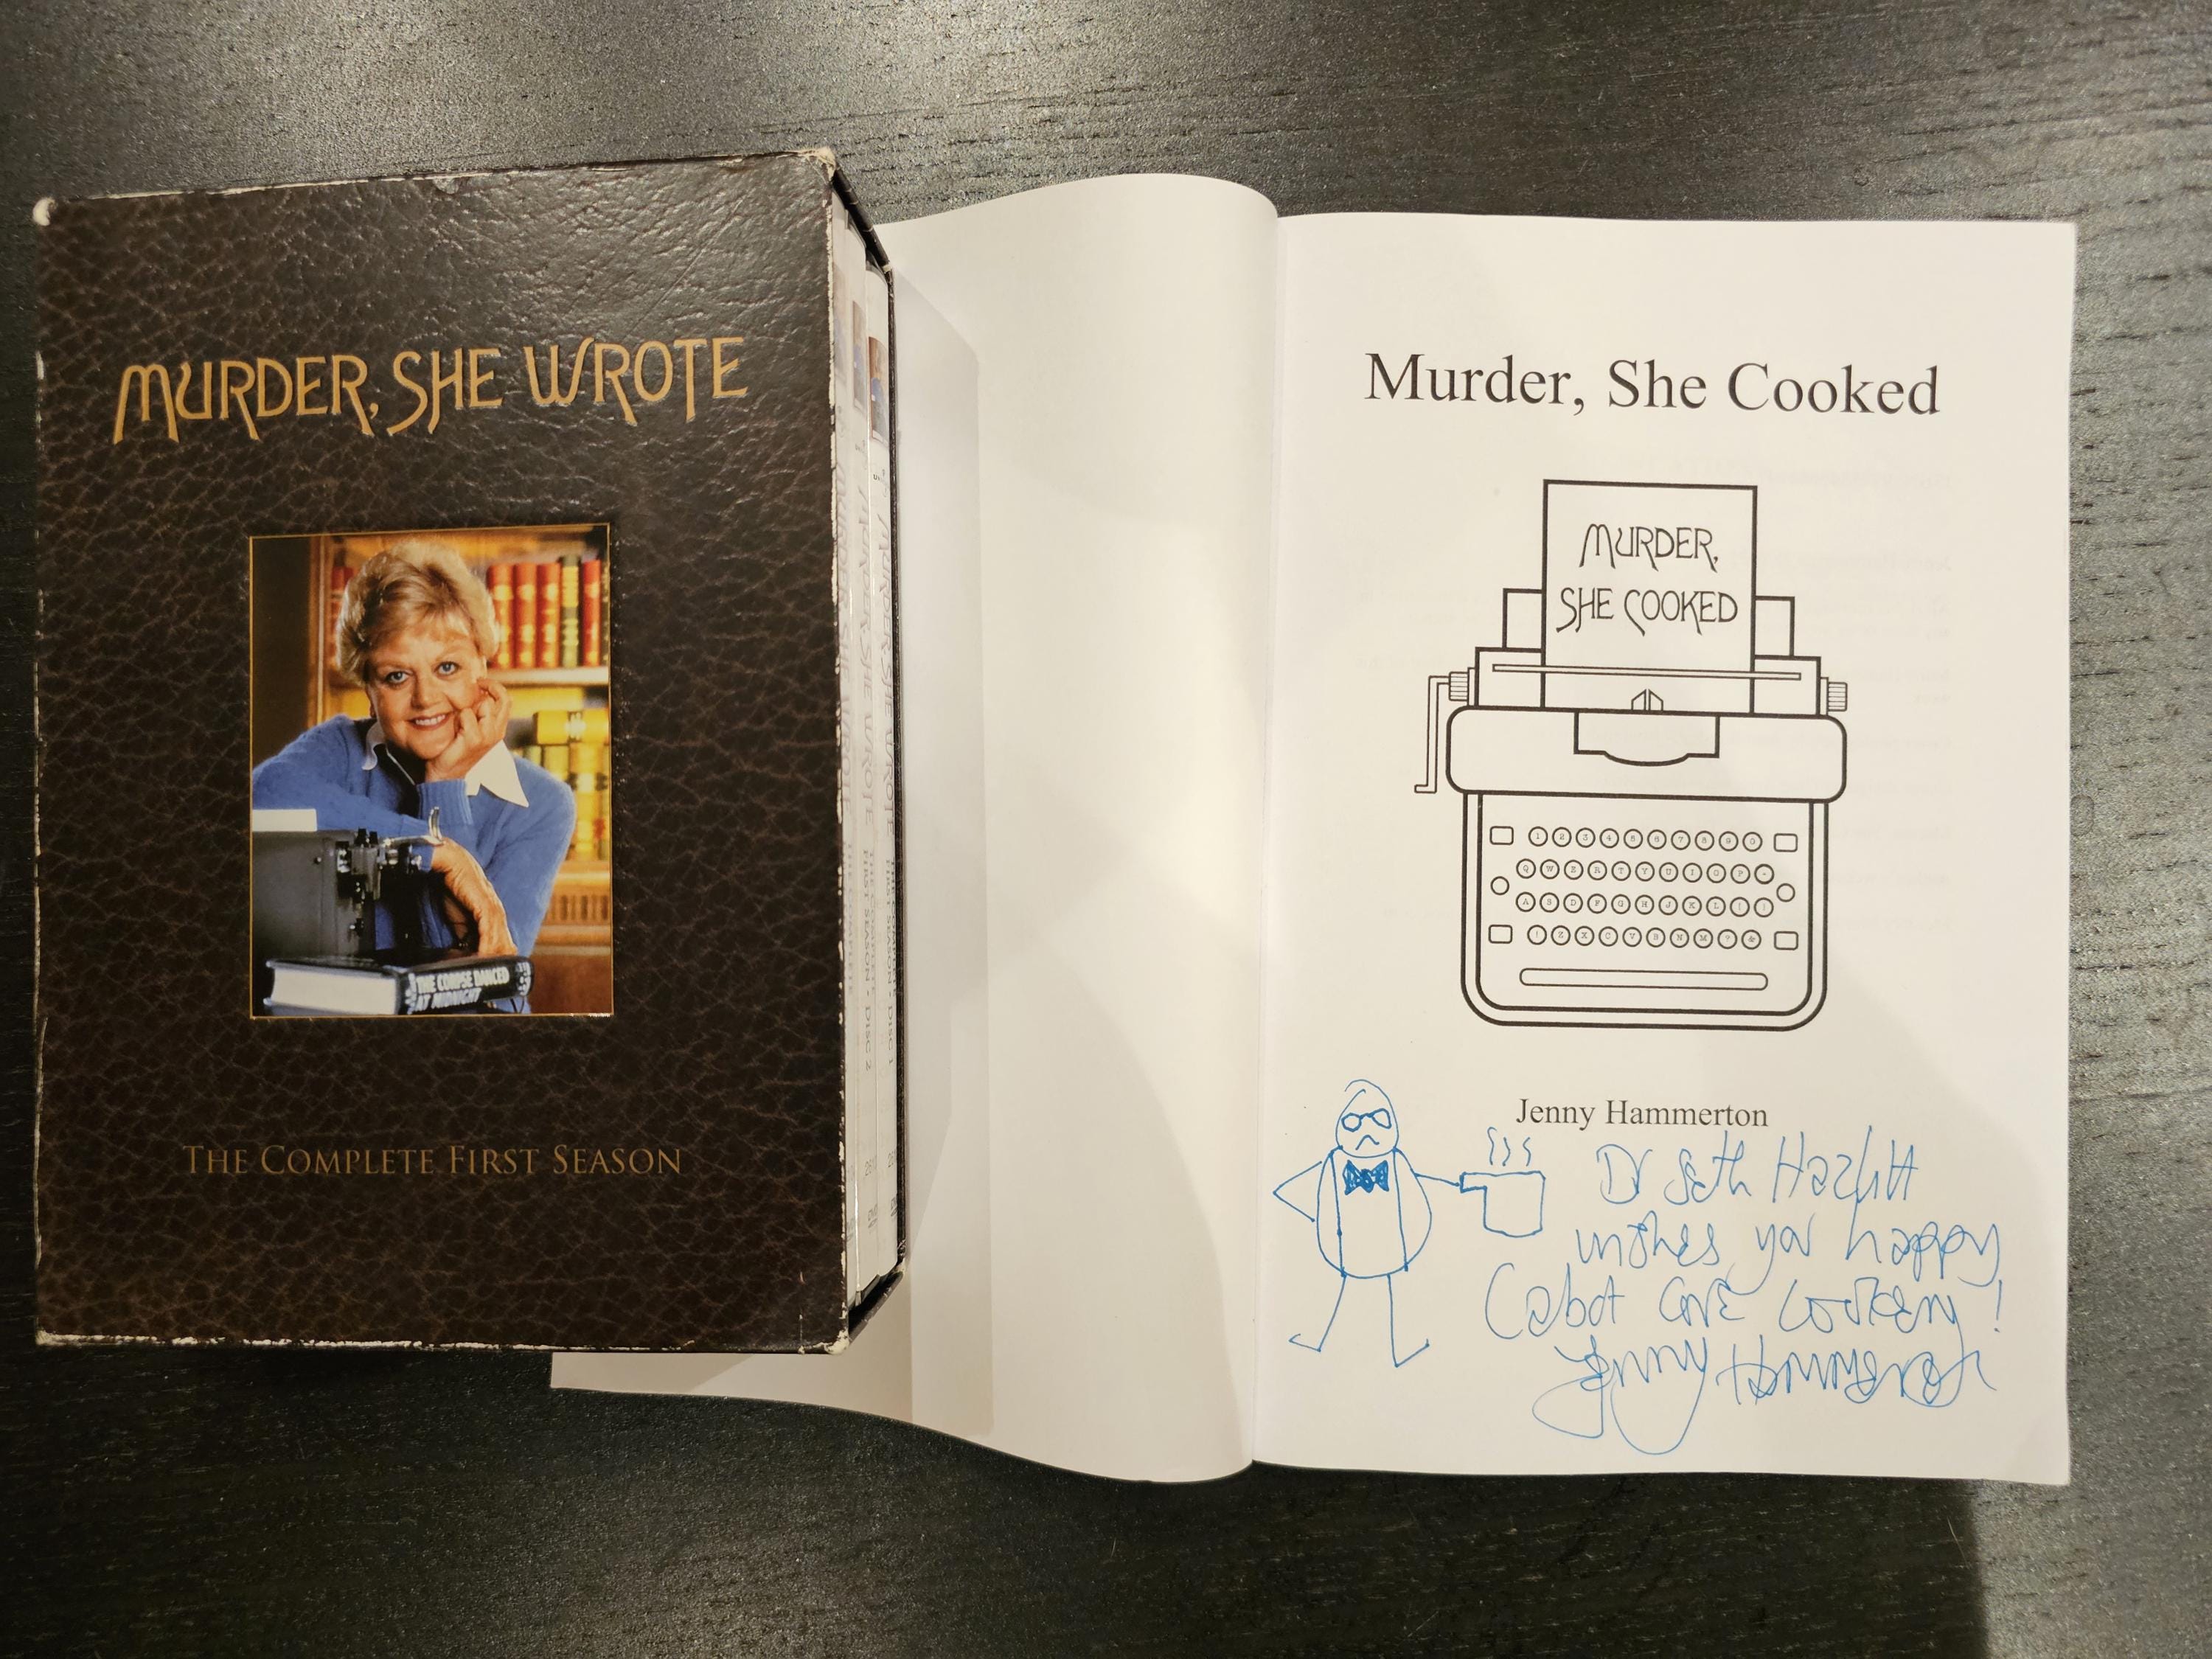 MURDER, SHE WROTE
THE CORPSE DANCED
AT MIDNIGHT
THE COMPLETE FIRST SEASON
MURDER, SHE WROTE
MURDER, SHE WROTE
THE COMPLETE
FIRST SEASON · DISC 2
MURDER, SHE WROTE
FIRST SEASON · DISC 1
Murder, She Cooked
MURDER,
SHE COOKED
1 2 3 4 5 6 7 8 9 0
Q W E R T Y U I O P -
A S D F G H J K L
! Z X C V B N M ? &
Jenny Hammerton
Dr Seth Hazlitt
wishes you happy
Cabot Cove Cookery!
Jenny Hammerton